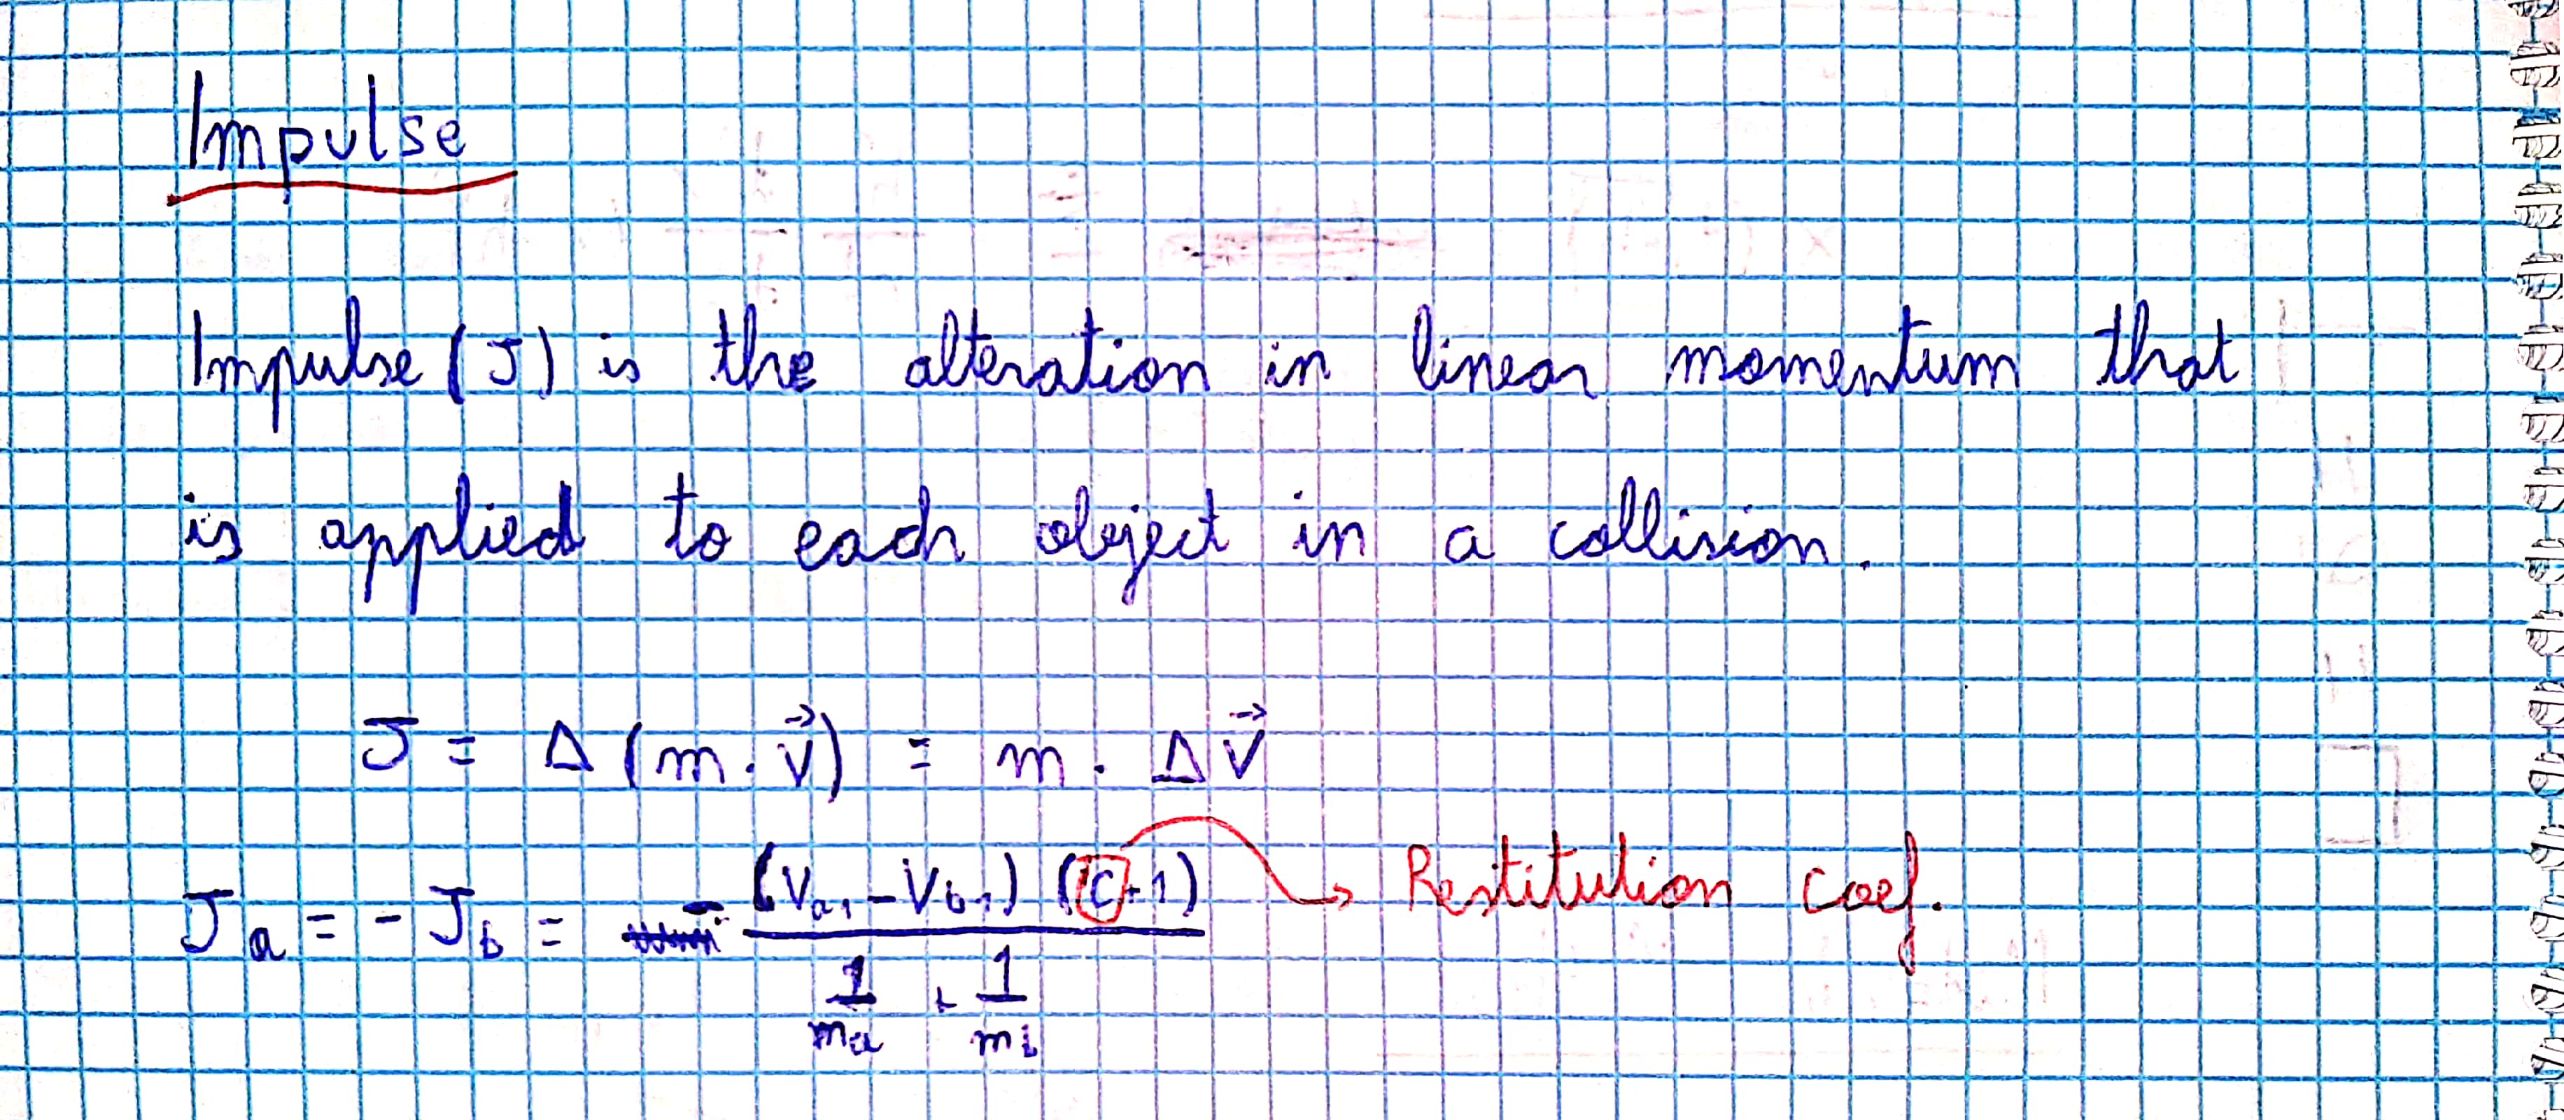 Impulse
Impulse (J) is the alteration in linear momentum that
is applied to each object in a collision.
J = Δ (m · v⃗) = m · Δv⃗
Ja = - Jb = -(va1 - vb1) (c+1) → Restitution coef.
1/ma + 1/mi